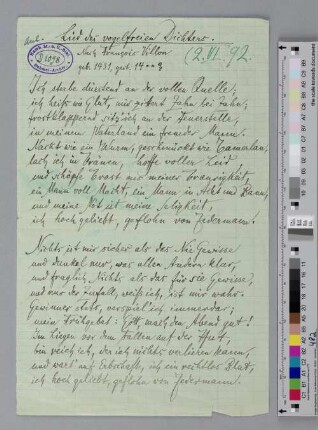 Lied des vogelfreien Dichters.
Nach François Villon
geb. 1431, gest. 14--?
(2. VI. 92.
Ich sterbe dürstend an der vollen Quelle;
ich, heiß wie Glut, mir zittert Zahn bei Zahn;
frostklappernd sitz ich an der Feuerstelle,
in meinem Vaterland ein fremder Mann.
Nackt wie ein Wurm, geschmückt wie Tamerlan,
lach ich in Tränen, hoffe voller Leid
und schöpfe Trost aus meiner Traurigkeit,
ein Mann voll Macht, ein Mann in Acht und Bann,
und meine ist meine Seligkeit,
ich hoch geliebt, geflohn von Jedermann.
Nichts ist mir sicher als das Nie Gewisse
und dunkel nur, was allen Andern klar,
und fraglich Nichts als das für sie Gewisse,
und nur der Zufall, weiß ich, ist mir wahr.
Gewinner stets, verspiel ich immerdar;
mein Frühgebet: Gott, mach den Abend gut!
Im Liegen vor dem Fallen auf der Hut,
bin reich ich, der ich nichts verlieren kann,
und wart auf Erbschaft, ich ein rechtlos Blut,
ich hoch geliebt, geflohn von Jedermann.